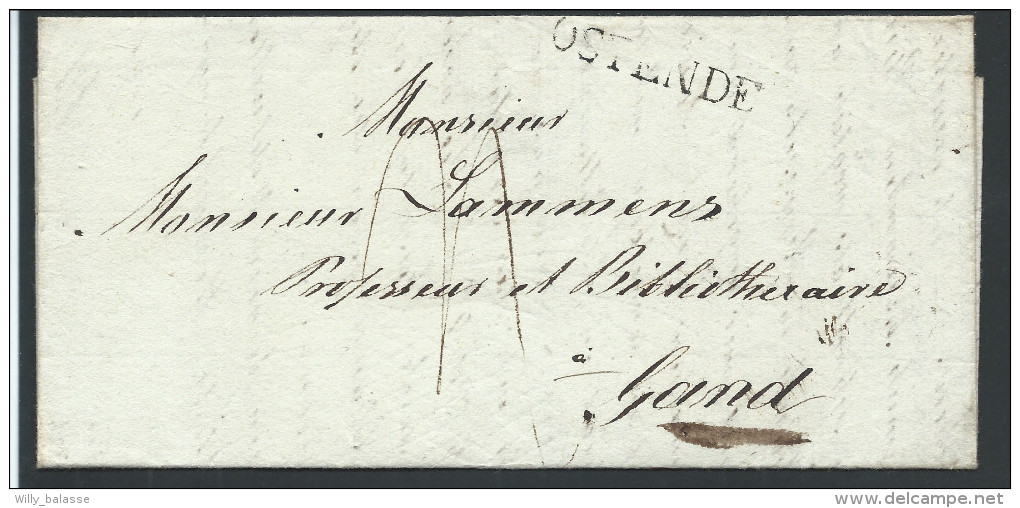 OSTENDE
Monsieur
Monsieur Lammens
Professeur et Bibliothecaire
à
Gand
Willy_balasse
delcampe.net